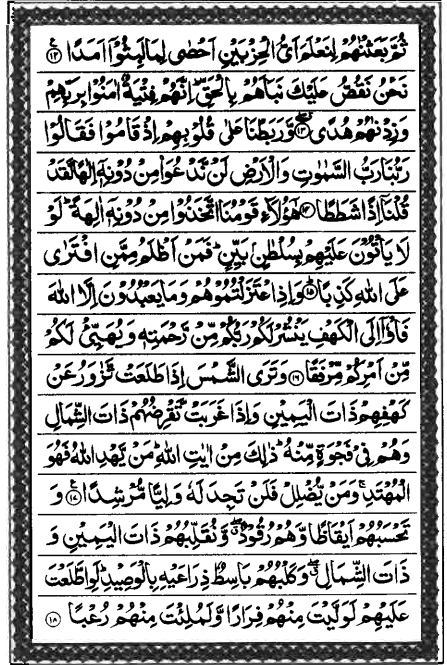 ثُمَّ بَعَثْنٰهُمْ لِنَعْلَمَ اَىُّ الْحِزْبَيْنِ اَحْصٰى لِمَا لَبِثُوْۤا اَمَدًا ﴿۱۲﴾ ع
نَحْنُ نَقُصُّ عَلَيْكَ نَبَاَهُمْ بِالْحَقِّ ؕ اِنَّهُمْ فِتْيَةٌ اٰمَنُوْا بِرَبِّهِمْ
وَزِدْنٰهُمْ هُدًى ﴿۱۳﴾ وَّرَبَطْنَا عَلٰى قُلُوْبِهِمْ اِذْ قَامُوْا فَقَالُوْا
رَبُّنَا رَبُّ السَّمٰوٰتِ وَالْاَرْضِ لَنْ نَّدْعُوَا۟ مِنْ دُوْنِهٖۤ اِلٰهًا لَّقَدْ
قُلْنَاۤ اِذًا شَطَطًا ﴿۱۴﴾ هٰۤؤُلَآءِ قَوْمُنَا اتَّخَذُوْا مِنْ دُوْنِهٖۤ اٰلِهَةً ؕ لَوْ
لَا يَاْتُوْنَ عَلَيْهِمْ بِسُلْطٰنٍۭ بَيِّنٍ ؕ فَمَنْ اَظْلَمُ مِمَّنِ افْتَرٰى
عَلَى اللّٰهِ كَذِبًا ﴿۱۵﴾ وَاِذِ اعْتَزَلْتُمُوْهُمْ وَمَا يَعْبُدُوْنَ اِلَّا اللّٰهَ
فَاْوٗۤا اِلَى الْكَهْفِ يَنْشُرْ لَكُمْ رَبُّكُمْ مِّنْ رَّحْمَتِهٖ وَيُهَيِّئْ لَكُمْ
مِّنْ اَمْرِكُمْ مِّرْفَقًا ﴿۱۶﴾ وَتَرَى الشَّمْسَ اِذَا طَلَعَتْ تَّزٰوَرُ عَنْ
كَهْفِهِمْ ذَاتَ الْيَمِيْنِ وَاِذَا غَرَبَتْ تَّقْرِضُهُمْ ذَاتَ الشِّمَالِ
وَهُمْ فِىْ فَجْوَةٍ مِّنْهُ ؕ ذٰلِكَ مِنْ اٰيٰتِ اللّٰهِ ؕ مَنْ يَّهْدِ اللّٰهُ فَهُوَ
الْمُهْتَدِ ۚ وَمَنْ يُّضْلِلْ فَلَنْ تَجِدَ لَهٗ وَلِيًّا مُّرْشِدًا ﴿۱۷﴾ ع وَ
تَحْسَبُهُمْ اَيْقَاظًا وَّهُمْ رُقُوْدٌ ۖ وَّنُقَلِّبُهُمْ ذَاتَ الْيَمِيْنِ وَ
ذَاتَ الشِّمَالِ ۖ وَكَلْبُهُمْ بَاسِطٌ ذِرَاعَيْهِ بِالْوَصِيْدِ ؕ لَوِ اطَّلَعْتَ
عَلَيْهِمْ لَوَلَّيْتَ مِنْهُمْ فِرَارًا وَّلَمُلِئْتَ مِنْهُمْ رُعْبًا ﴿۱۸﴾